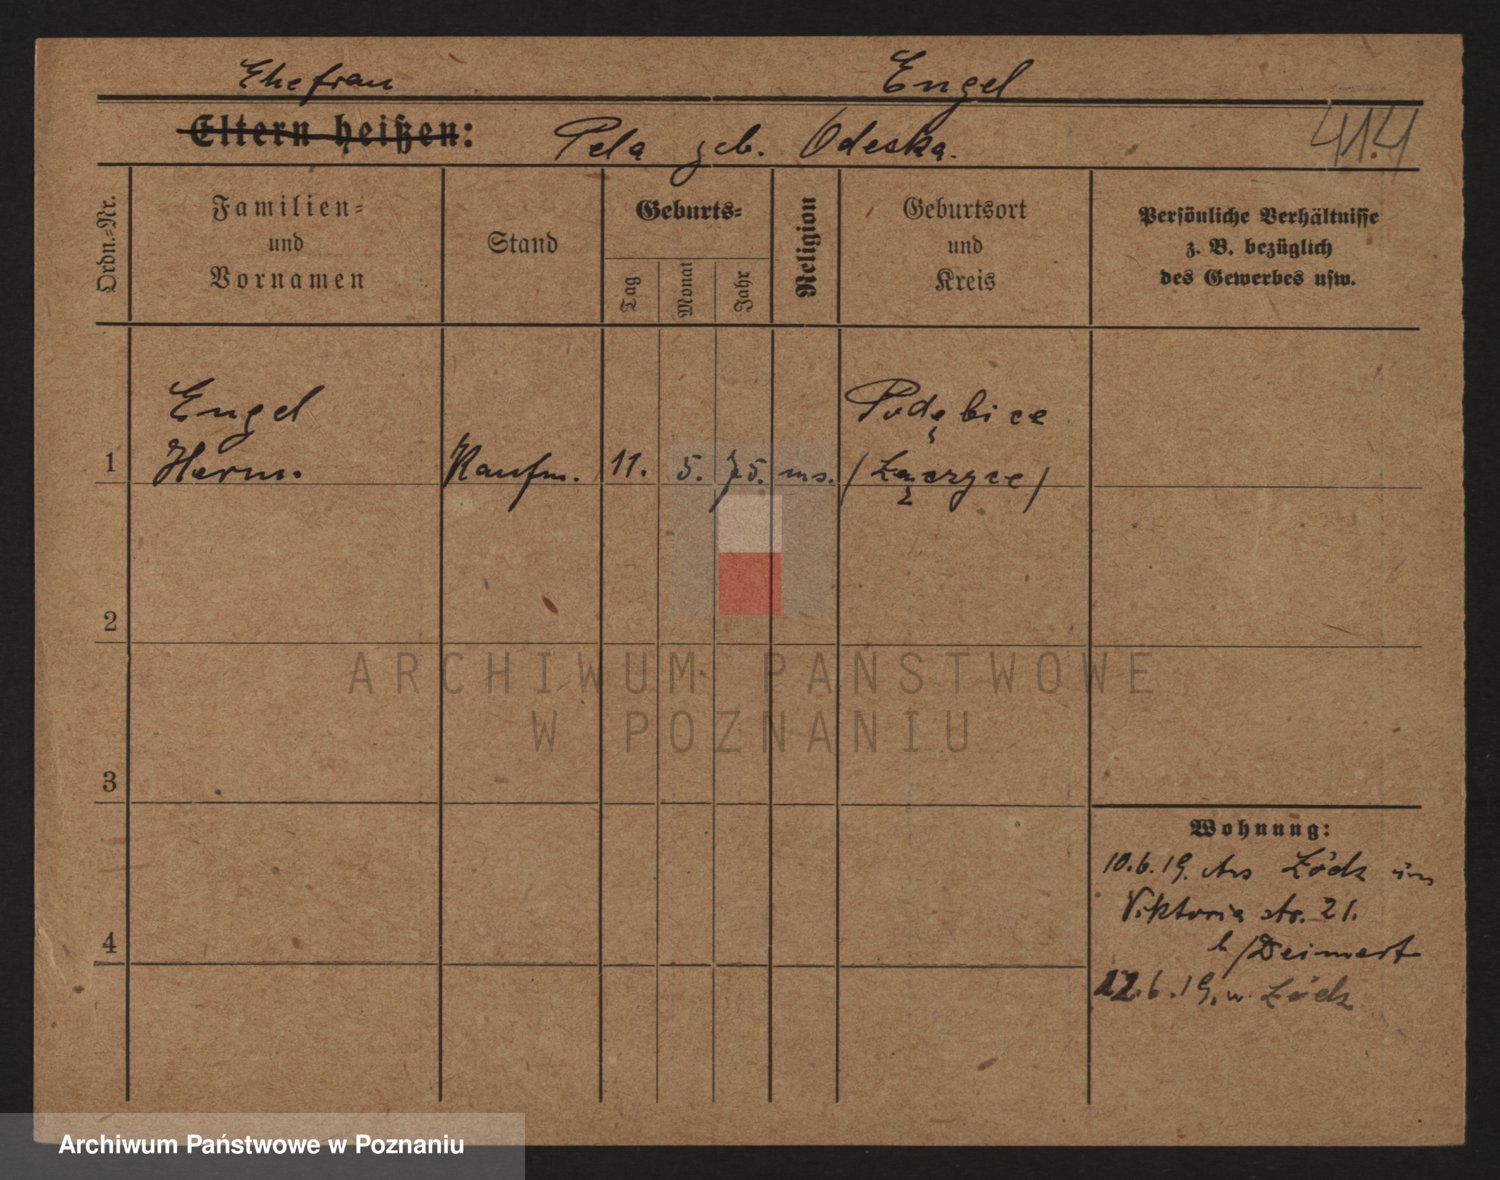 Ehefrau Engel
Eltern heißen: Pela geb. Odeska.
414
Ordn.=Nr.
Familien=
und
Vornamen
Stand
Geburts=
Tag
Monat
Jahr
Religion
Geburtsort
und
Kreis
Persönliche Verhältnisse
z. B. bezüglich
des Gewerbes usw.
Engel
Podębice
1 Herm. Kaufm. 11. 5. 75. ms. (Łęczyce)
2
ARCHIWUM PAŃSTWOWE
W POZNANIU
3
Wohnung:
10.6.19. Aus Łódź in
Viktoria str. 21.
4
b/Deimert
12.6.19. n. Łódź
Archiwum Państwowe w Poznaniu